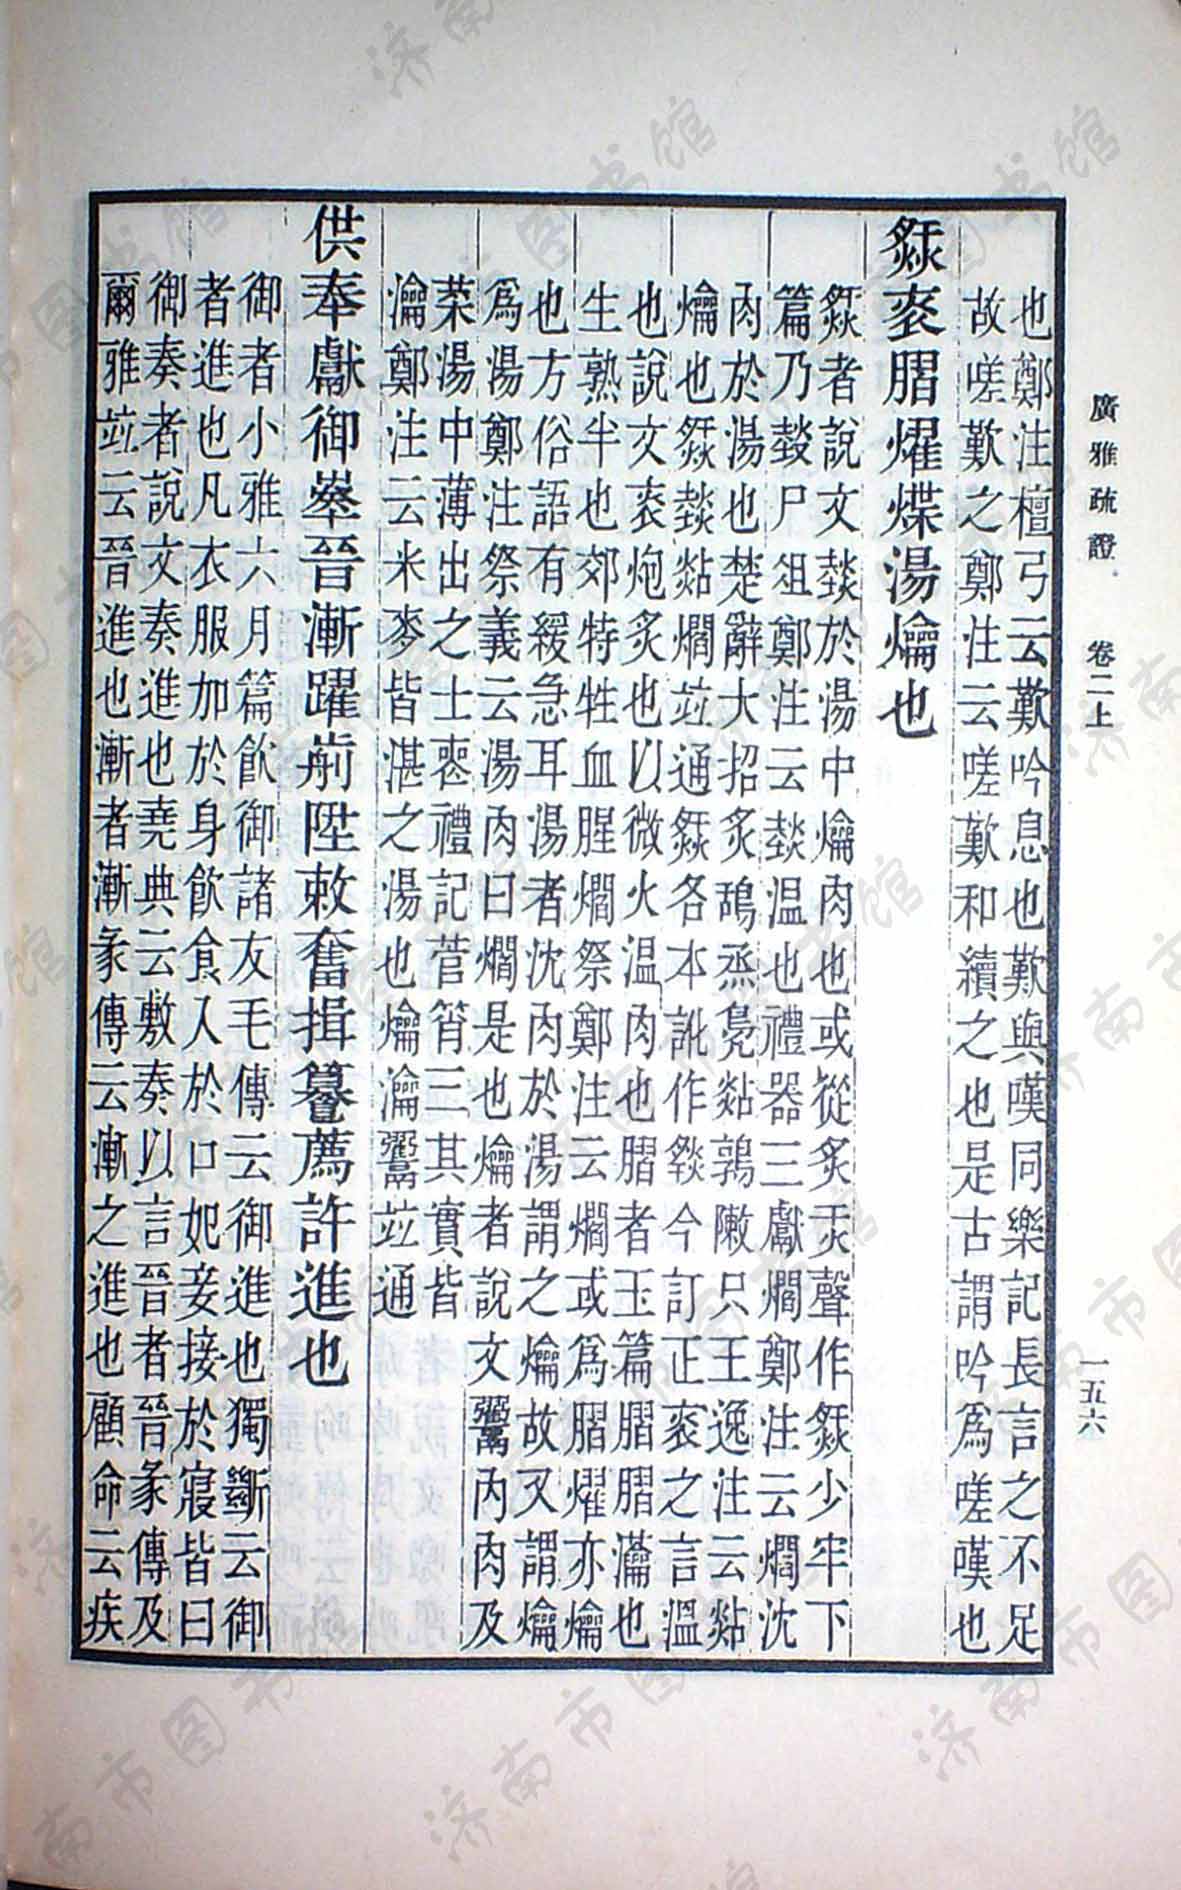 廣雅疏證　卷二上　一五六
也鄭注檀弓云歎吟息也歎與嘆同樂記長言之不足
故嗟歎之鄭注云嗟歎和續之也是古謂吟爲嗟嘆也
燿煠湯爚也
者說文燅於湯中爚肉也或從炙聲作少牢下
篇乃燅尸俎鄭注云燅温也禮器三獻爓鄭注云爓沈
肉於湯也楚辭大招炙鴰烝鳧煔鶉敶只王逸注云煔
爚也燅煔爓竝通各本訛作今訂正之言溫
也說文炮炙也以微火温肉也者玉篇瀹也
生熟半也郊特牲血腥爓祭鄭注云爓或爲燿亦爚
也方俗語有緩急耳湯者沈肉於湯謂之爚故又謂爚
爲湯鄭注祭義云湯肉曰爓是也爚者說文鬻內肉及
菜湯中薄出之士喪禮記菅筲三其實皆
瀹鄭注云米麥皆湛之湯也爚瀹竝通
供奉獻御晉漸躍前陞敕奮揖薦許進也
御者小雅六月篇飮御諸友毛傳云御進也獨斷云御
者進也凡衣服加於身飮食入於口妃妾接於寢皆曰
御奏者說文奏進也堯典云敷奏以言晉者晉彖傳及
爾雅竝云晉進也漸者漸彖傳云漸之進也顧命云疾